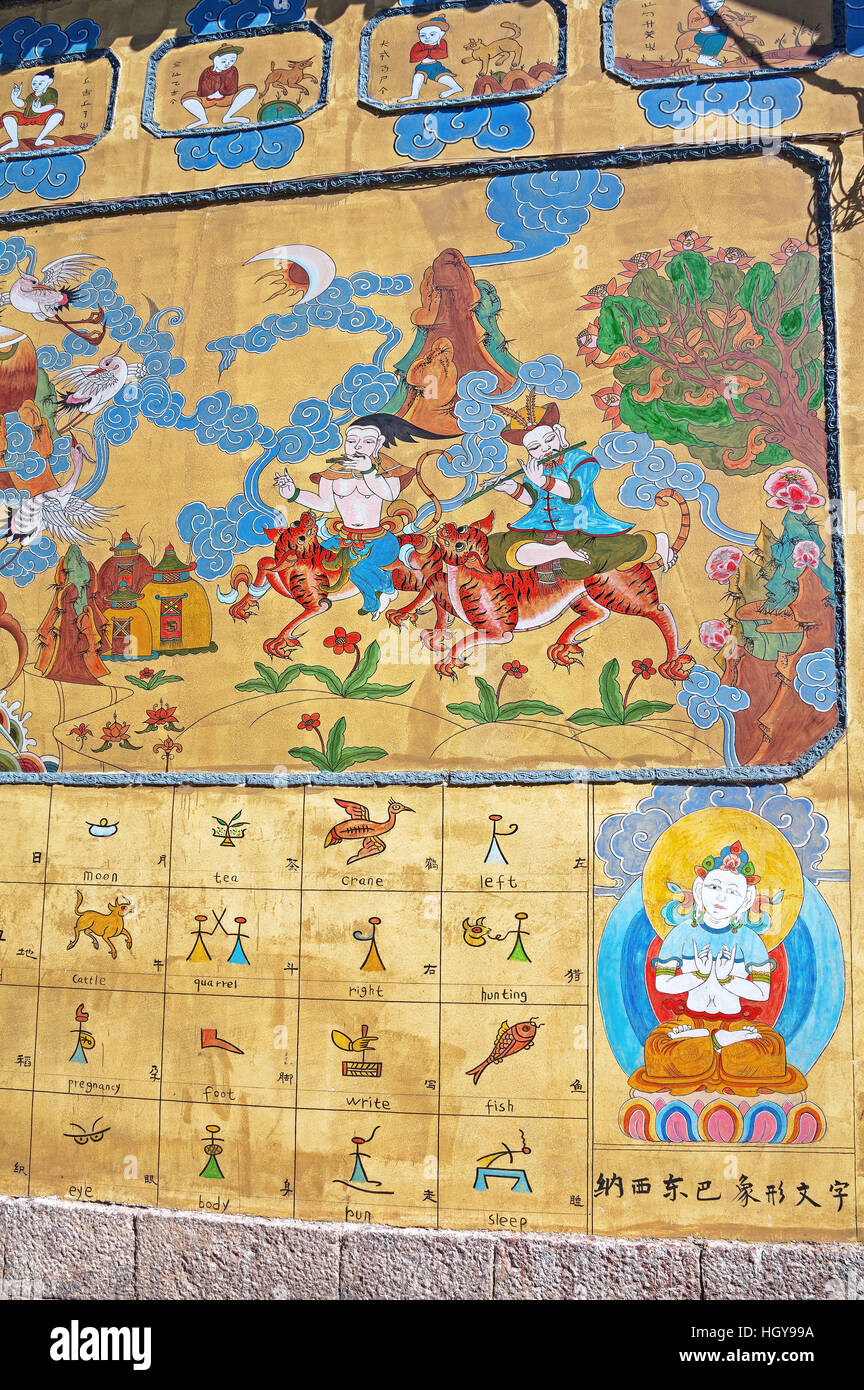 日
moon 月
tea 茶
crane 鹤
left 左
地
cattle 牛
quarrel 斗
right 右
hunting 猎
稻
pregnancy 孕
foot 脚
write 写
fish 鱼
织
eye 眼
body 身
run 走
sleep 睡
纳西东巴象形文字
alamy
alamy
Image ID: HGY99A
www.alamy.com